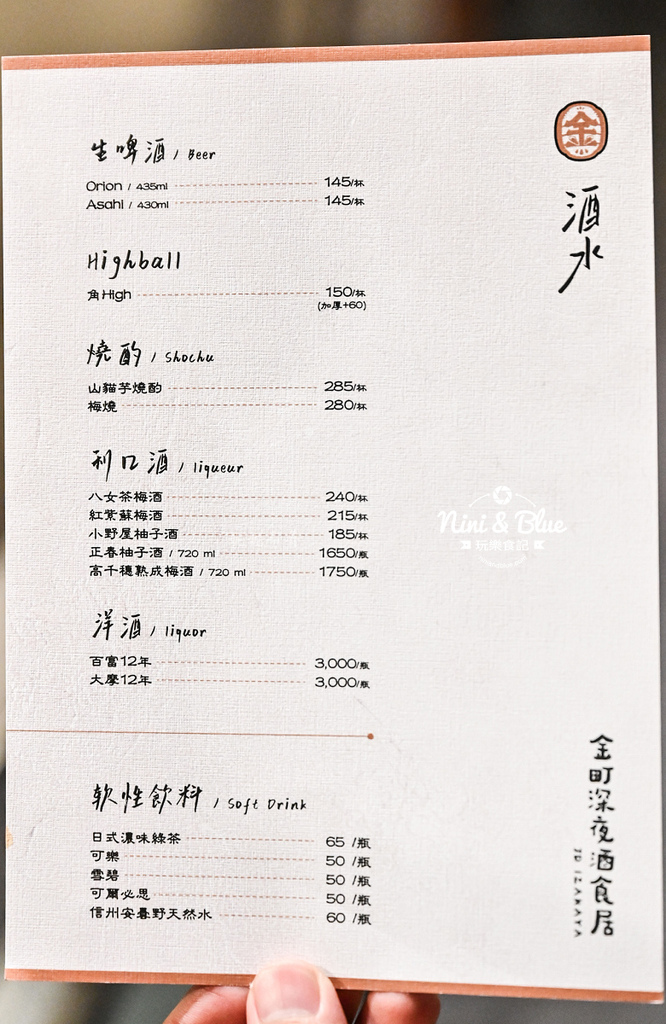 金
酒水
生啤酒 / Beer
Orion / 435ml 145/杯
Asahi / 430ml 145/杯
Highball
角High 150/杯
(加厚+60)
燒酌 / Shochu
山貓芋燒酌 285/杯
梅燒 280/杯
利口酒 / liqueur
八女茶梅酒 240/杯
紅紫蘇梅酒 215/杯
小野屋柚子酒 185/杯
正春柚子酒 / 720 ml 1650/瓶
高千穗熟成梅酒 / 720 ml 1750/瓶
Nini & Blue
玩樂食記
洋酒 / liquor
百富12年 3,000/瓶
大摩12年 3,000/瓶
軟性飲料 / Soft Drink
日式濃味綠茶 65 /瓶
可樂 50 /瓶
雪碧 50 /瓶
可爾必思 50 /瓶
信州安曇野天然水 60 /瓶
金町深夜酒食居
JD IZAKAYA